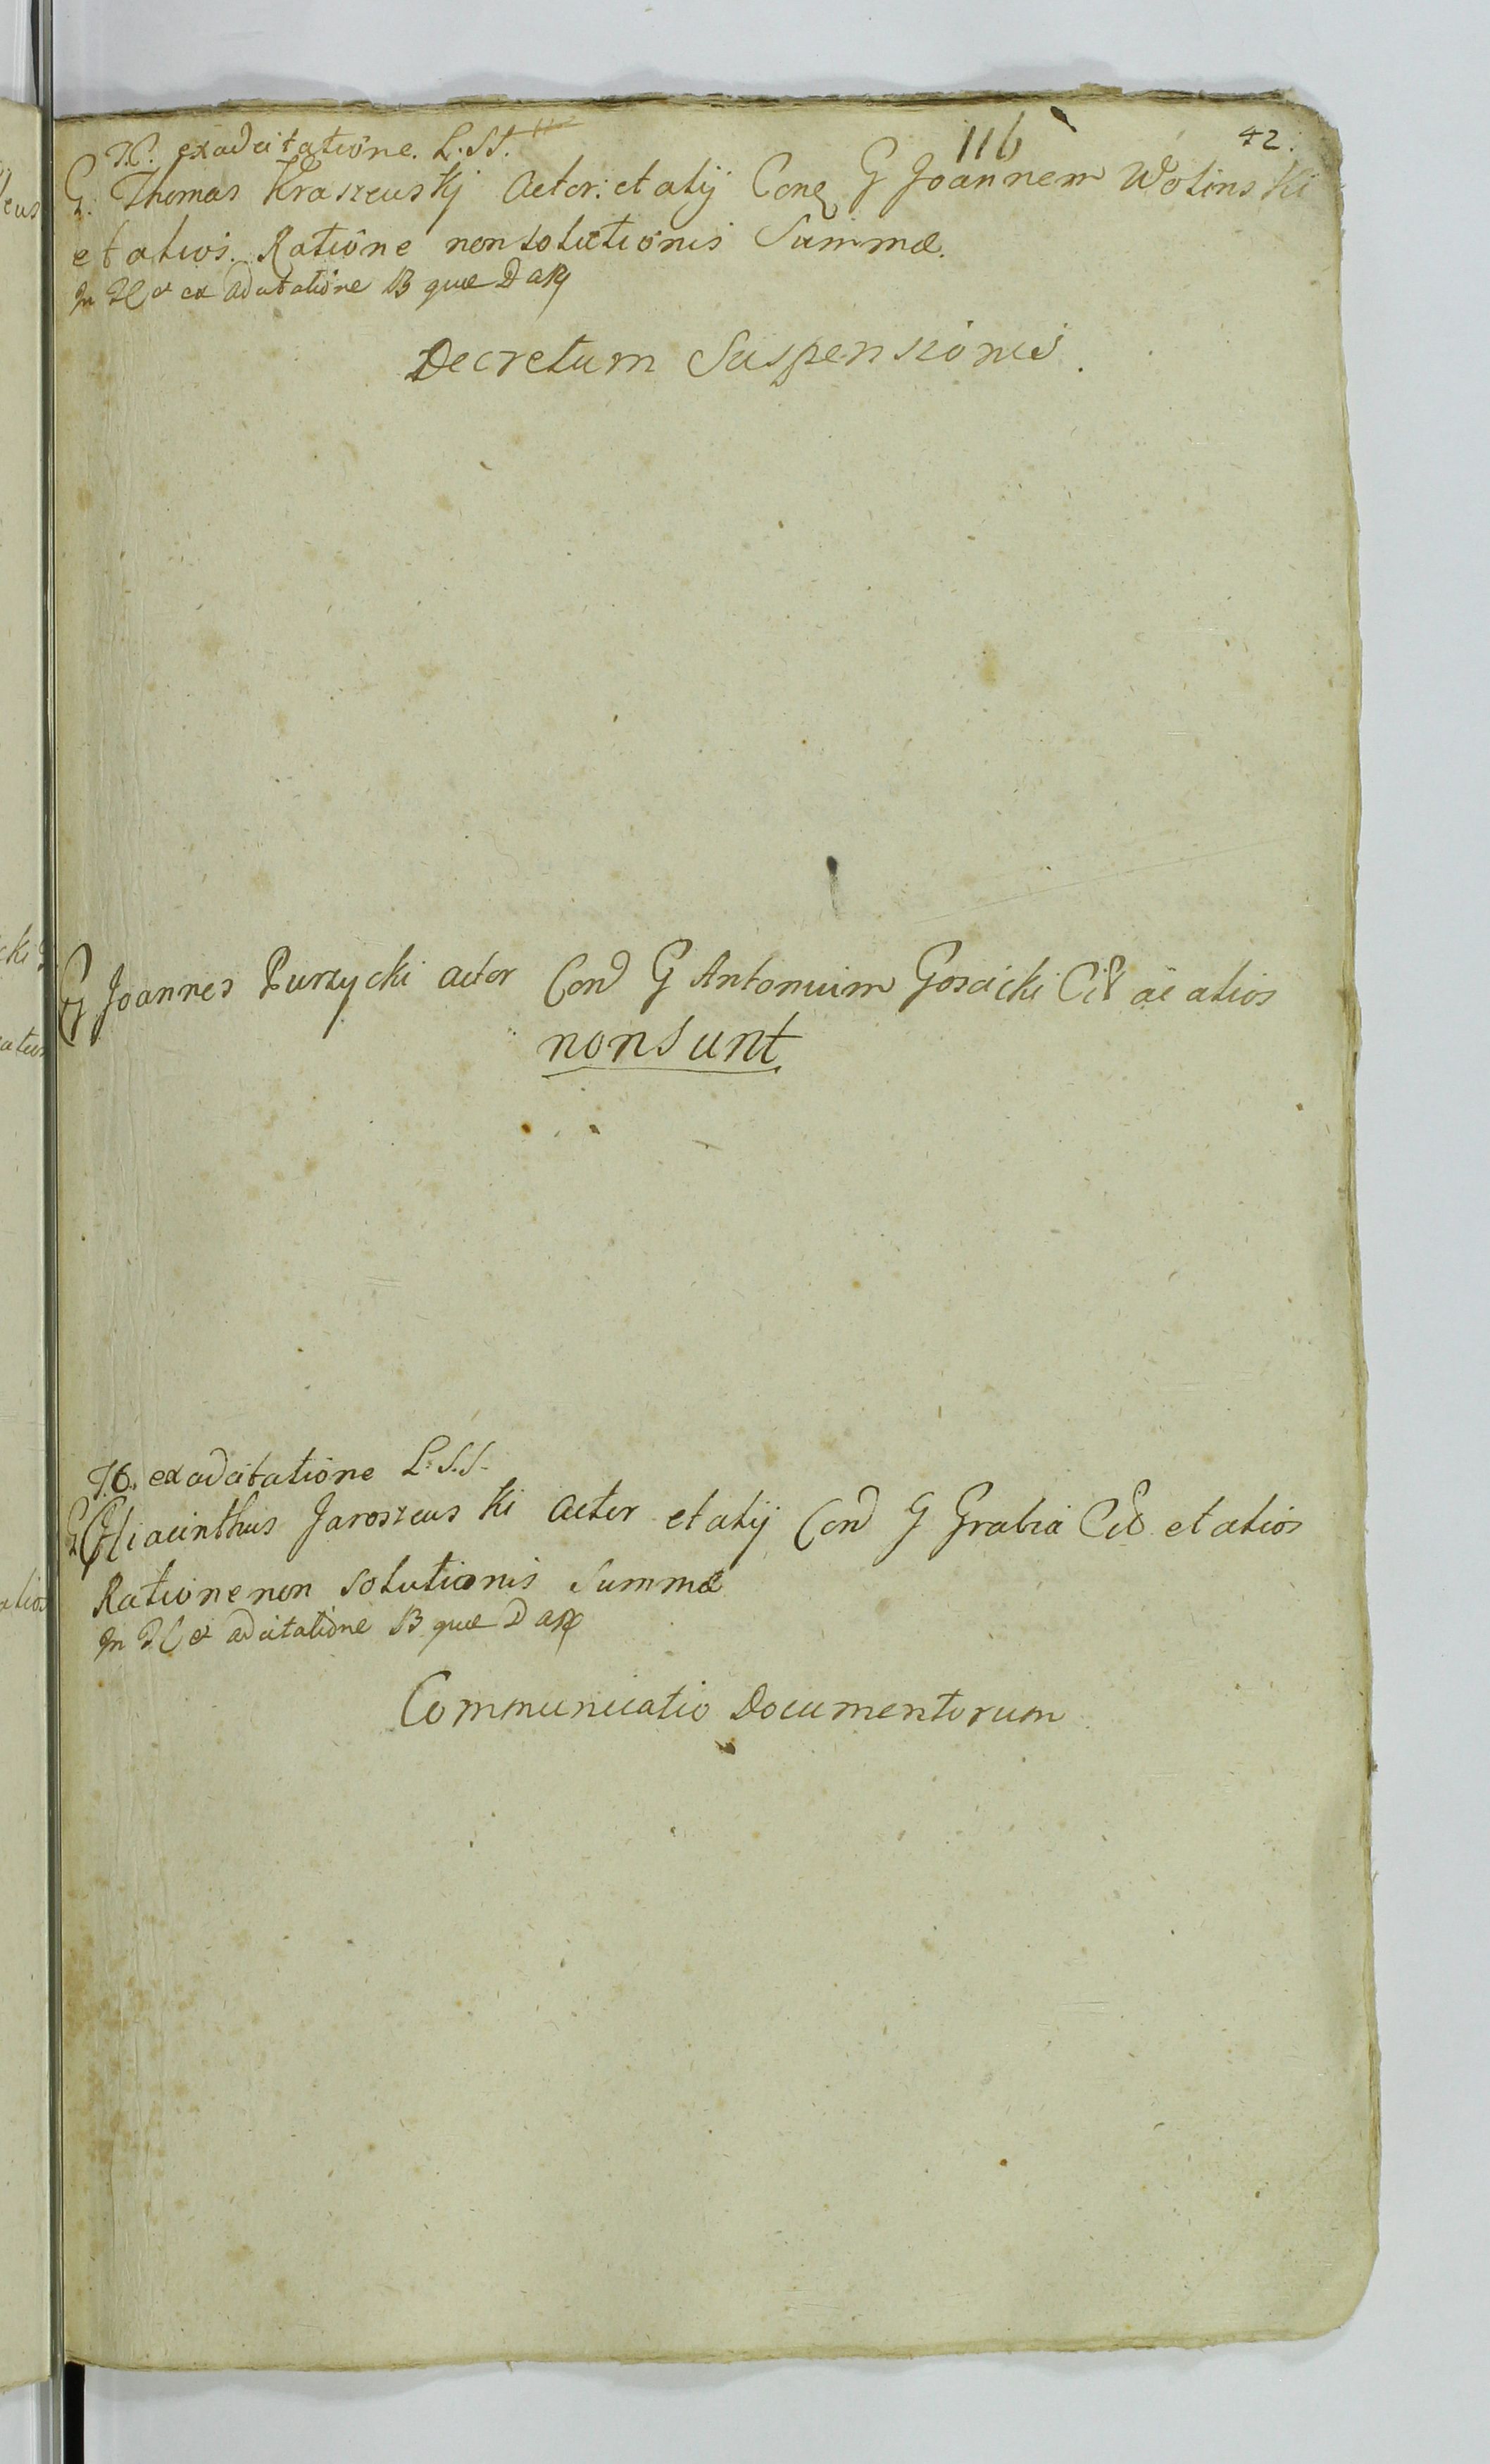 116 42.
T.C. exadcitatione. L.St.
G. Thomas Kraszeuskj Actor: et alij Conq G Joannem Wolinski
et alios. Ratione non solutionis Summæ.
In TC et ex adcitatione B quæ D
Decretum Suspensionis.
G Joannes Purzycki actor Con G Antonium Gosicki Cit ac alios
non sunt
T.C. exadcitatione L.S.S.
G Hiacinthus Jaroszeuski Actor et alij Con G Grabia Cit et alios
Ratione non solutionis Summæ
In TC et adcitatione B quæ D
Communicatio Documentorum